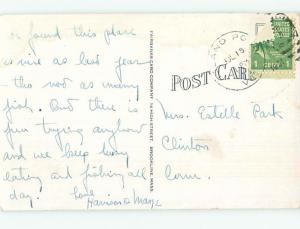 found this place
nice as last year
- tho not as many
fish. But there is
fun trying anyhow
and we keep busy
eating and fishing all
day. Love
Harrison & Marge
FAIRBANKS CARD COMPANY 74 HIGH STREET BROOKLINE, MASS.
POST CARD
Mrs. Estelle Park
Clinton
Conn.
AND PO
JUL 15
UNITED STATES
1 CENT 1